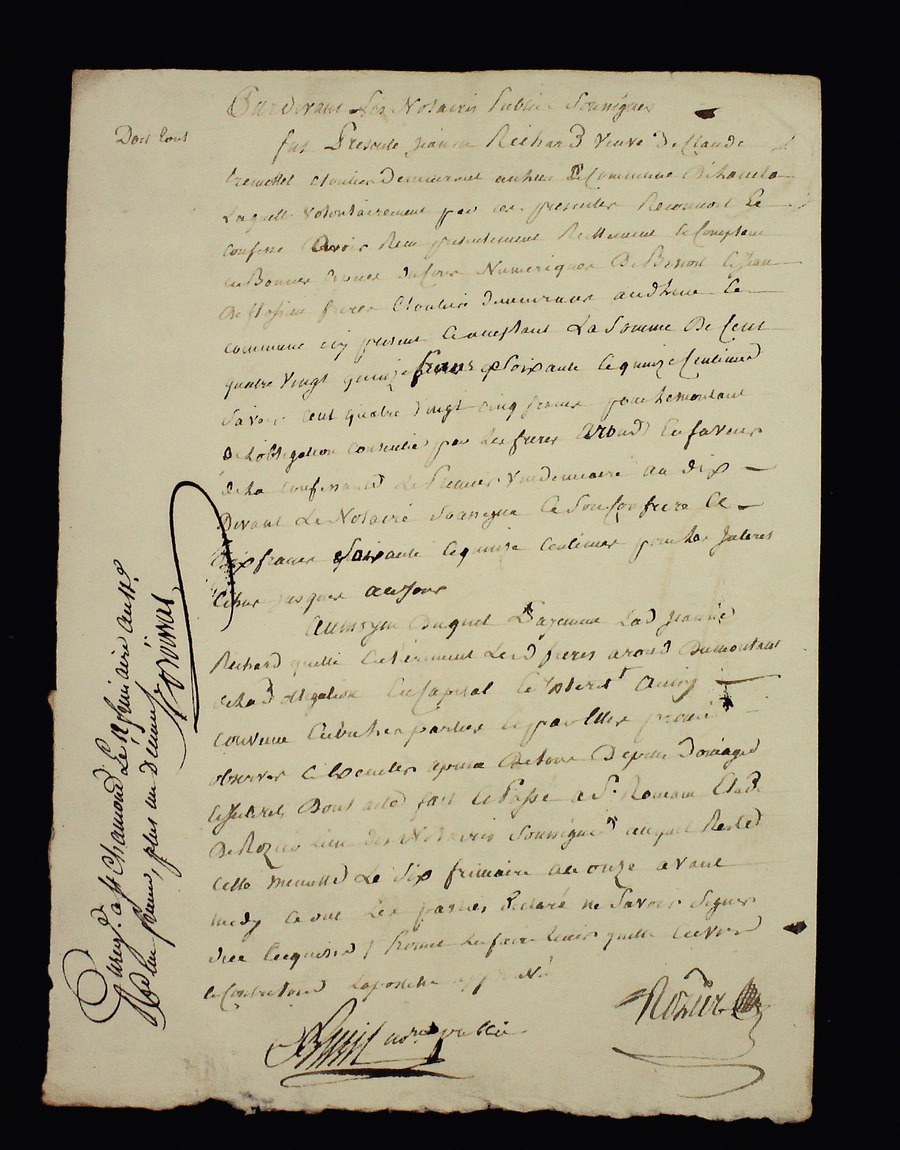 Pardevant Les Notaires Publics Soussignés
fut Presente jeanne Richard veuve De Claude
cloutier Demeurant au lieu & Commune
Laquelle volontairement par ces presentes Reconnoit Et
confesse Avoir Reçu presentement Reellement Et Comptant
en Bonnes Especes de Cours Numeriques De Benoit Et Jean
freres Cloutiers Demeurans audit lieu Et
commune icy present Et acceptant La Somme De Cent
quatre vingt quinze francs & Soixante Et quinze Centimes
Savoir cent quatre vingt cinq francs pour Le montant
De L'obligation consentie par Les freres aroud En faveur
de La Confessante Le Premier Vendemiaire an dix
Devant Le Notaire Soussigné Et Son Confrere Et
Dix francs Soixante Et quinze Centimes pour Les Interets
Echus jusques au Jour
Au moyen Duquel Payement Lad jeanne
Richard quitte Entierement Lesd freres aroud Du montant
de Lad obligation En Capital Et Interet Ainsy
convenu Entre Les parties Et par Elles promis
observer Et Executer a peine De tous Depens Domages
Et Interets Dont acte fait Et Passé a St. Romain
Lieu Des Notaires Soussignés auquel Reste
cette minutte Le Six frimaire an onze avant
midy Et ont Les parties Declaré ne Savoir Signer
de ce Enquises
Rozier
nore public
Dont Cons
Enregé. a St Chamond Le frimaire an XI.
Reçu un franc, plus un Decime